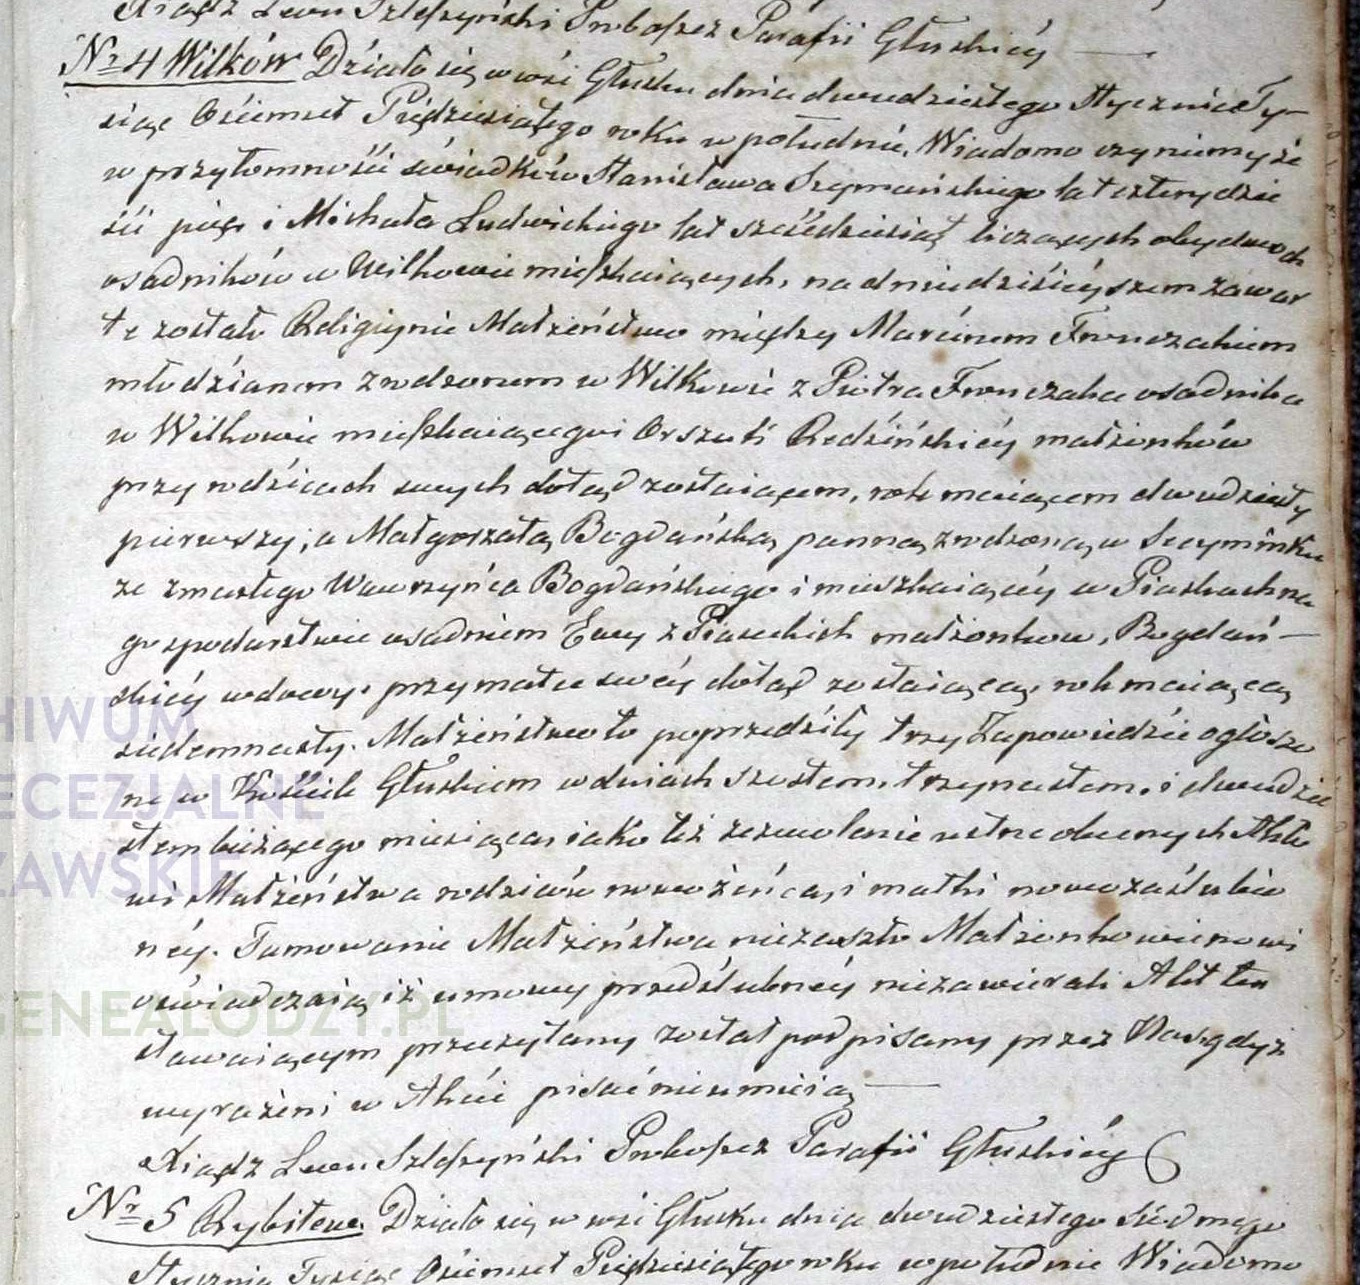 Xiądz Leon Szleszyński Proboszcz Parafii Głuskiéy
Nr 4 Wilków Działo się w wsi Głusku dnia dwudziestego Stycznia Ty-
siąc Ośiemset Piędziesiątego roku w południe, Wiadomo czyniemy że
w przytomnośći świadków Stanisława Szymańskiego lat czterydzie
śći pięć i Michała Ludwickiego lat sześćdziesiąt liczących obydwoch
osadników w Wilkowie mieszkaiących, na dniu dziśieyszem zawar
te zostało Religiynie Małżeństwo między Marćinem Fronczakiem
młodzianem zrodzonem w Wilkowie z Piotra Fronczaka osadnika
w Wilkowie mieszkaiącego i Orszuli Redzińskiéy małżonków
przy rodźicach swych dotąd zostaiącem, rok maiącem dwudziesty
pierwszy; a Małgorzatą Bogdańską panną zrodzoną w Secyminku
ze zmarłego Wawrzyńca Bogdańskiego i mieszkaiącéy w Piaskach na
gospodarstwie osadniem Ewy z Piaseckich małżonków, Bogdań-
skiéy wdowy. przy matce swéy dotąd zostaiącą, rok maiącą
siedemnasty. Małżeństwo to poprzedźiły trzy Zapowiedźie ogłoszo
ne w Kośćiele Głuskiem w dniach szostem, trzynastem, i dwudzie
stem bieżącego miesiąca, iako też zezwolenie ustne obecnych Akto
wi Małżeństwa rodziców nowożeńca, i matki nowozaślubio
néy. Tamowanie Małżeństwa niezaszło Małżonkowie nowi
oświadczaią iż umowy przedślubnéy niezawierali Akt ten
stawaiącym przeczytany został podpisany przez Nas, gdyż
wyrażeni w Akćie pisać nieumieią
Xiądz Leon Szleszyński Proboszcz Parafii Głuskiéy
Nr 5 Rybitew Działo się w wsi Głusku dnia dwudziestego Siódmego
Stycznia Tysiąc Ośiemset Pięćdziesiątego roku w południe Wiadomo
HIWUM
ECEZJALNE
ZAWSKIE
GENEALODZY.PL